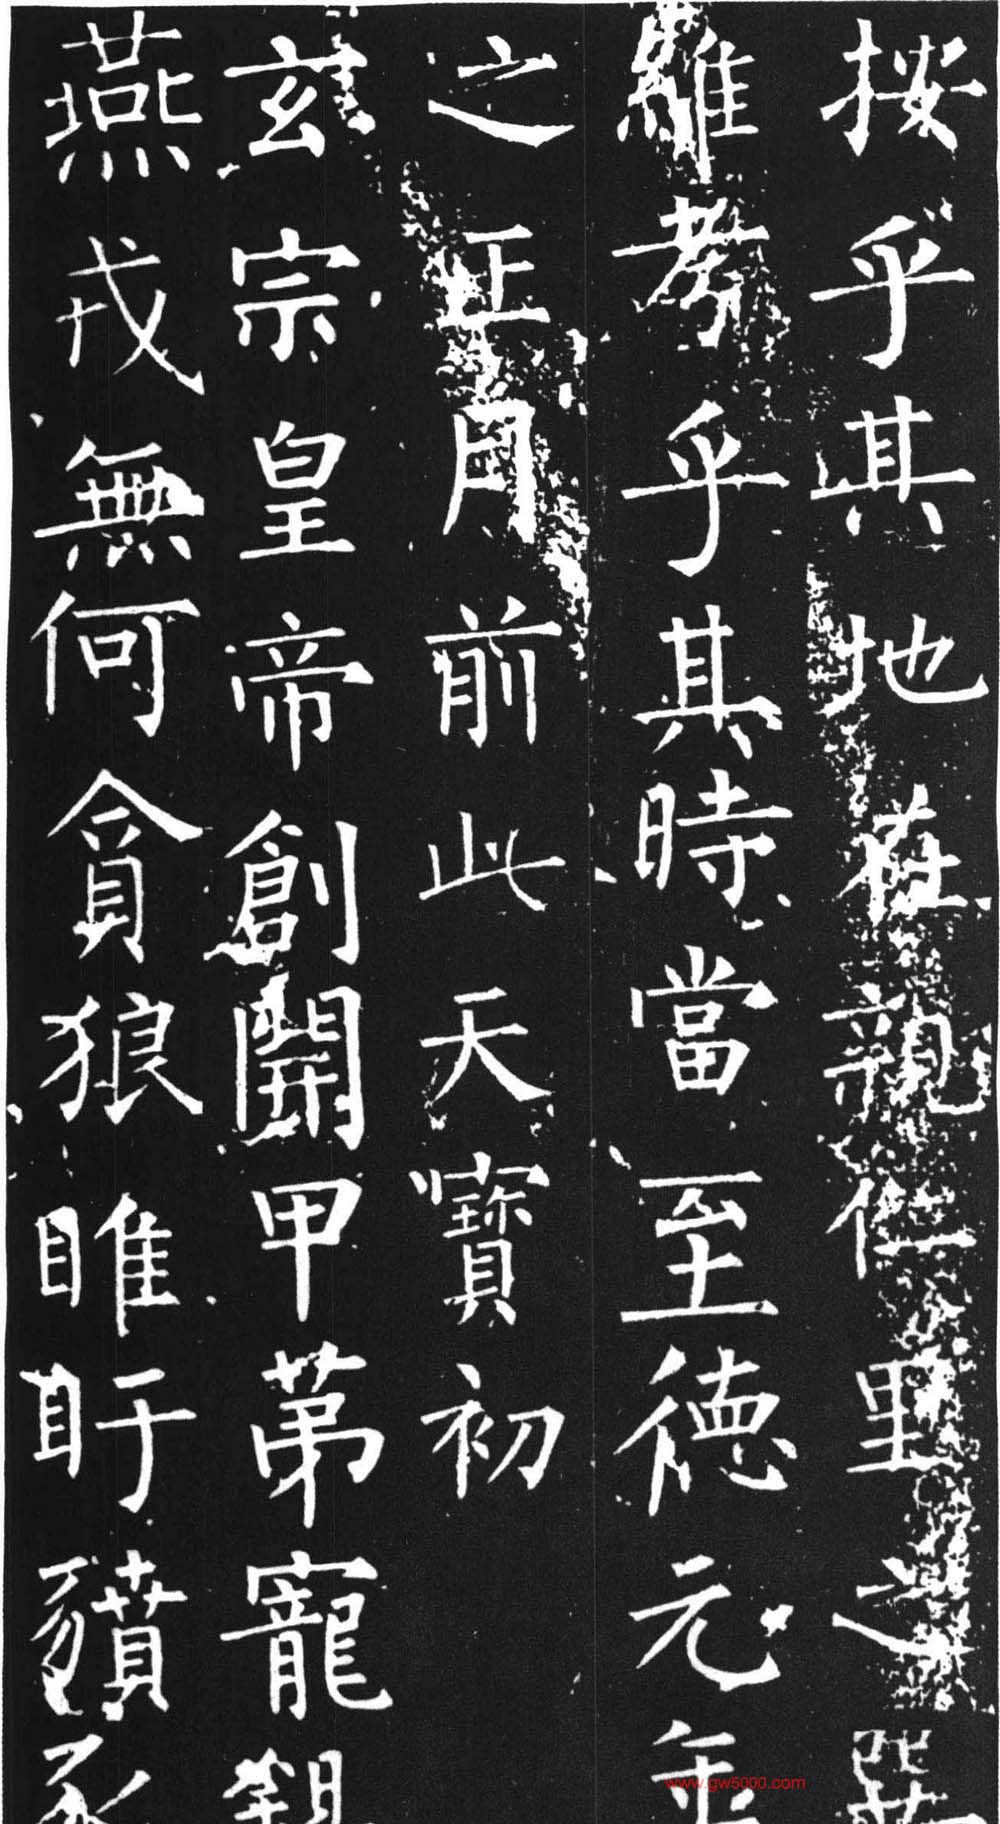 按乎其地在親仁里之
維考乎其時當至德元年
之正月前此天寶初
玄宗皇帝創開甲第寵
燕戎無何貪狼睢盱豶豕
www.gw5000.com